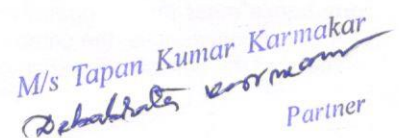 M/s Tapan Kumar Karmakar
Debabrata Karmakar
Partner